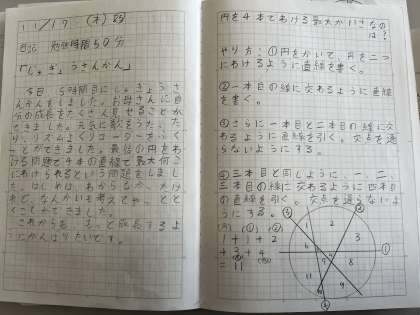 11/17 (木)
日記 勉強時間50分
「じゅぎょうさんかん」
今日、5時間目にじゅぎょうさ
んかんをしました。お母さんに自
分の成長をたくさん見せることが
できました。元気に歌をうたった
り、リズムよくリコーダーをふく
ことができました。最後の円をわ
ける問題で4本の直線で最大何こ
にわけられるという問題をしまし
た。はじめは、わからなかったけ
れど、なんかいも考えて、とと
くことができました。
これからも、もっと成長するよ
うにがんばりたいです。
円を4本でわける最大が11さなの
は?
やり方:①円をかいて、円を二つ
にわけるように直線を書く。
②一本目の線に交わるように直線
を書く。
③さらに一本目と二本目の線に交
わるように直線を引く。交点を通
らないようにする。
④三本目と同じように、一、二、
三本目の線に交わるように四本目
の直線を引く。交点を通らないよ
うにする。
(円) (①) (②)
1+1+2
+3+4
(③) (④)
=11
③
②
1
2
3
①
8
9
11
④